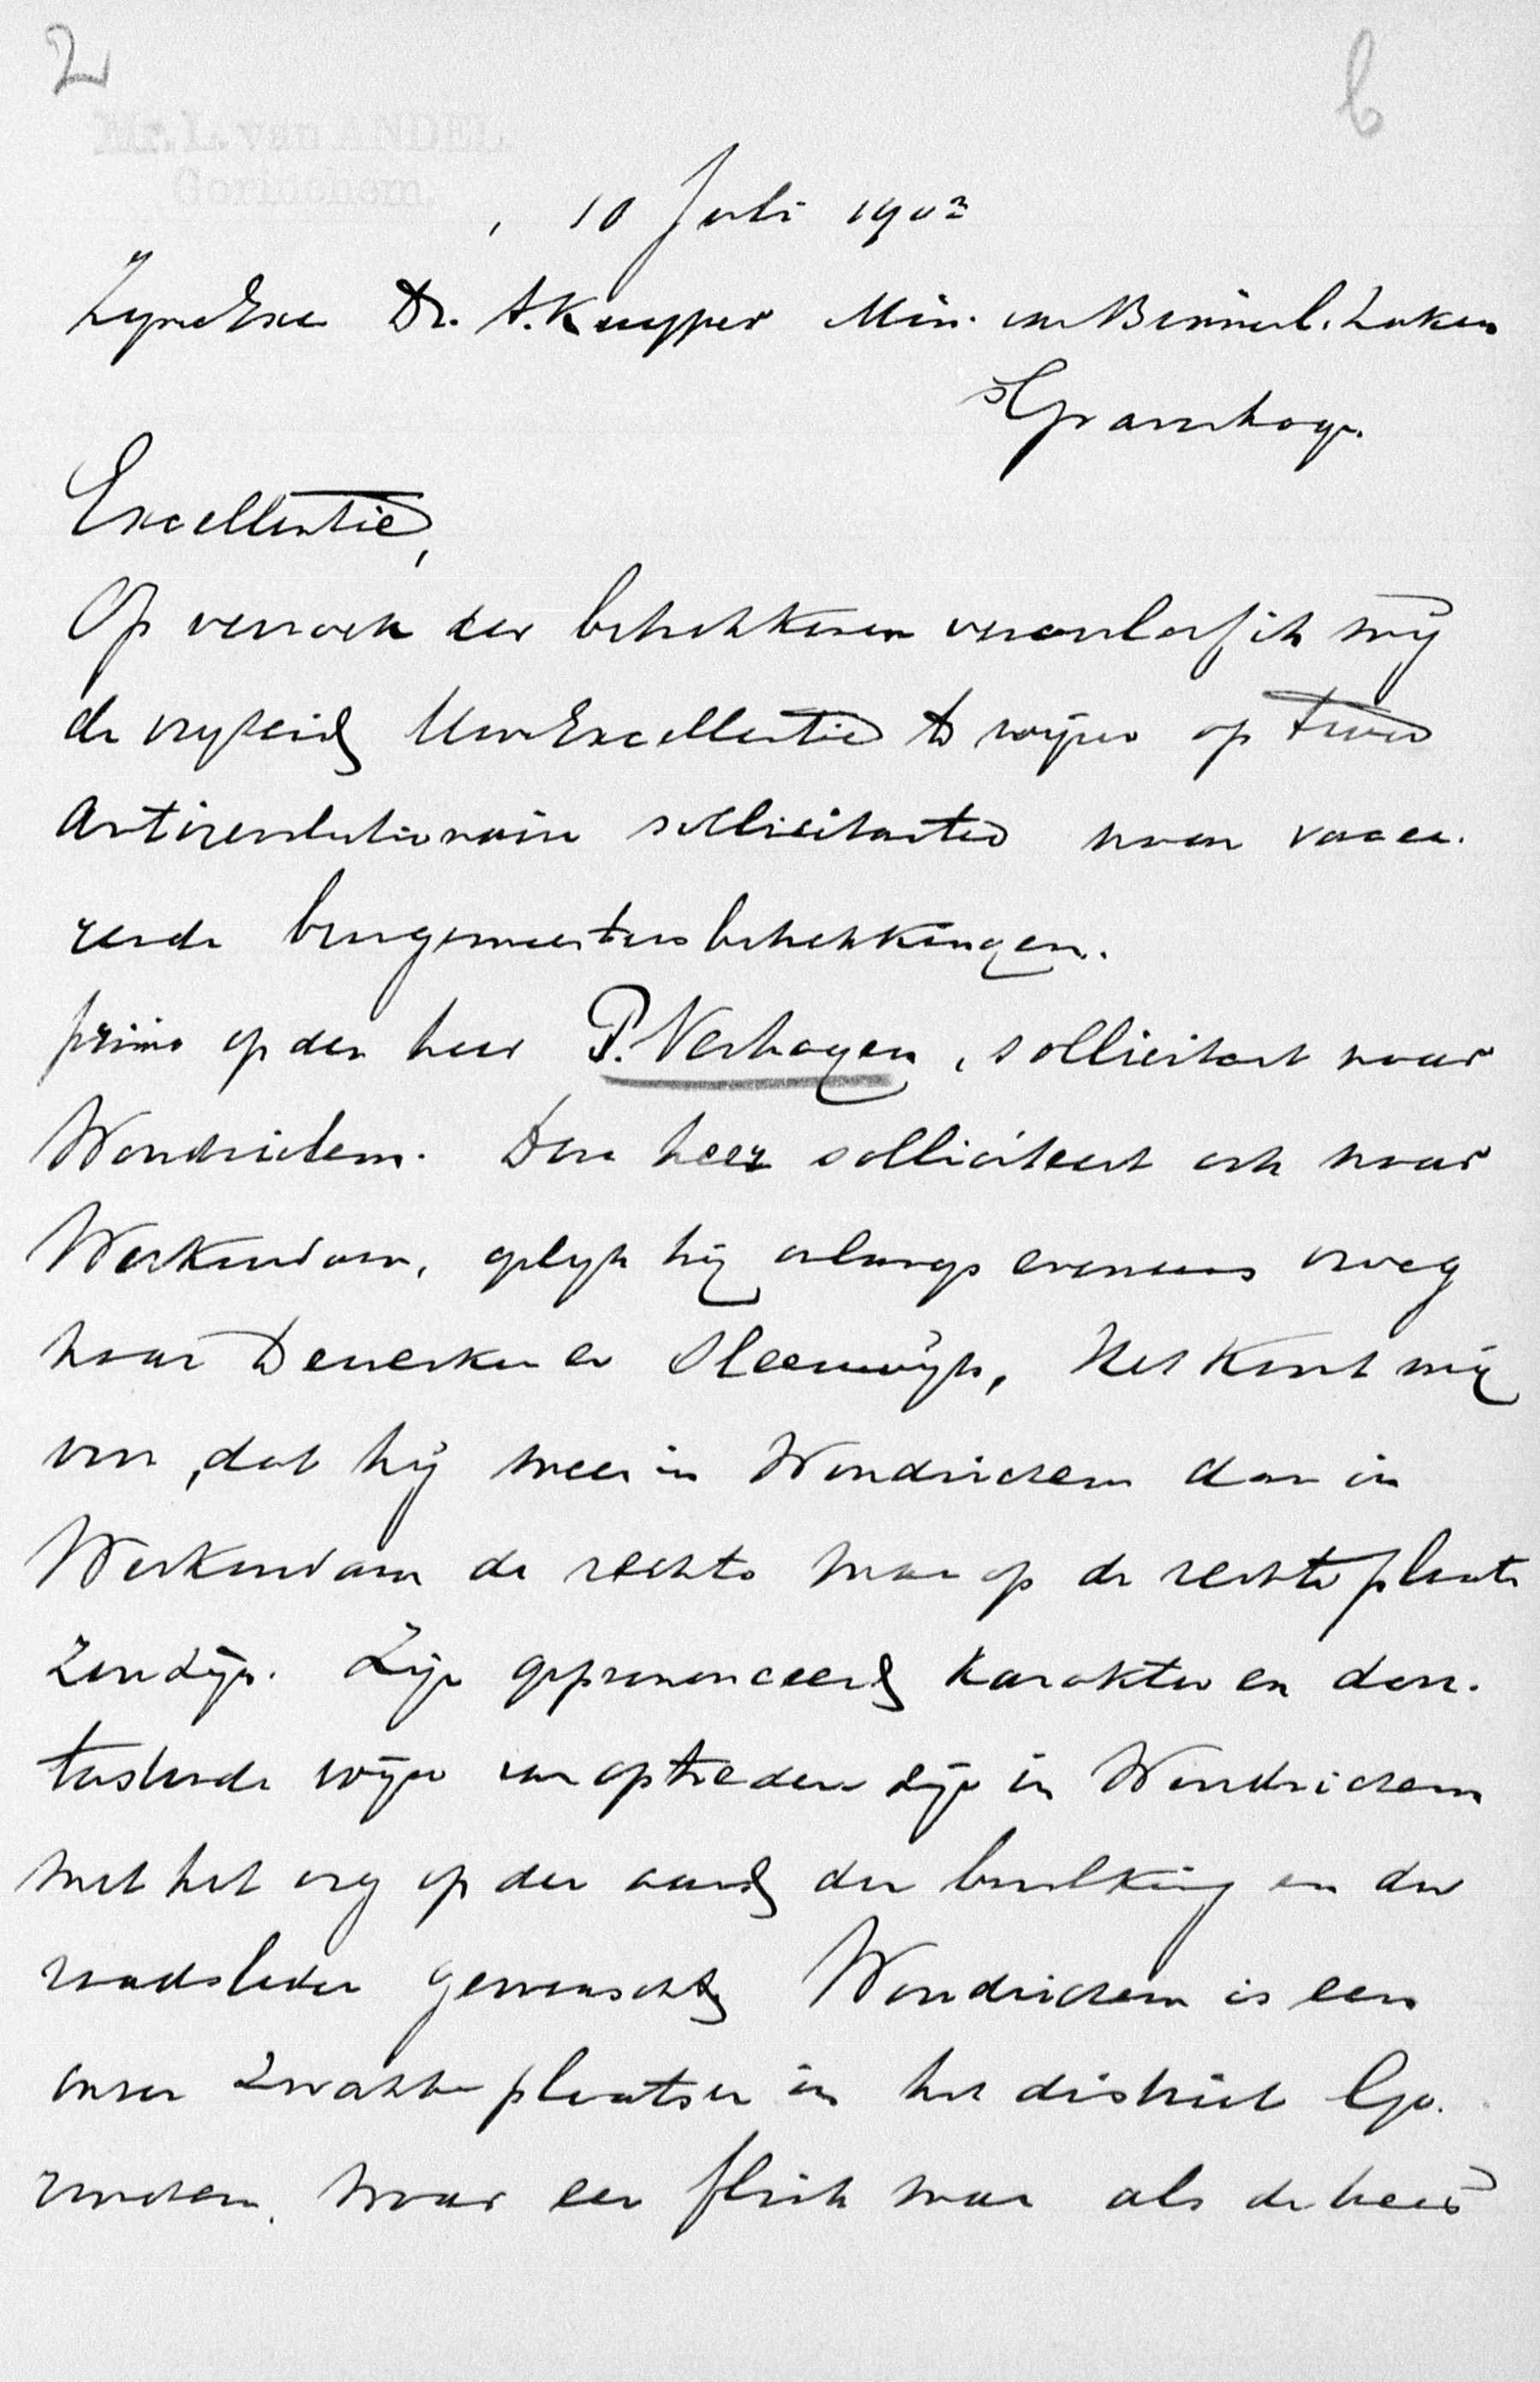 2
b
Mr. L. van ANDEL
Gorinchem
, 10 Juli 1902
Zijne Exc Dr. A. Kuyper Min. van Binnenl. Zaken
sGravenhage.
Excellentie,
Op verzoek der betrokkenen veroorloof ik mij
de vrijheid Uwe Excellentie te wijzen op twee
Antirevolutionaire sollicitanten naar vacee-
rende burgemeestersbetrekkingen.
primo op den heer P. Verhagen, sollicitant naar
Woudrichem. Deze heer solliciteert ook naar
Werkendam, gelijk hij onlangs eveneens vroeg
naar Dussen en Sleeuwijk, Het komt mij
voor, dat hij meer in Woudrichem dan in
Werkendam de rechte man op de rechte plaats
zou zijn. Zijn geprononceerd karakter en door-
tastende wijze van optreden zijn in Woudrichem
met het oog op den aard der bevolking en der
raadsleden gewenscht. Woudrichem is een
onzer zwakke plaatsen in het district Go-
rinchem, maar een flink man als de heer